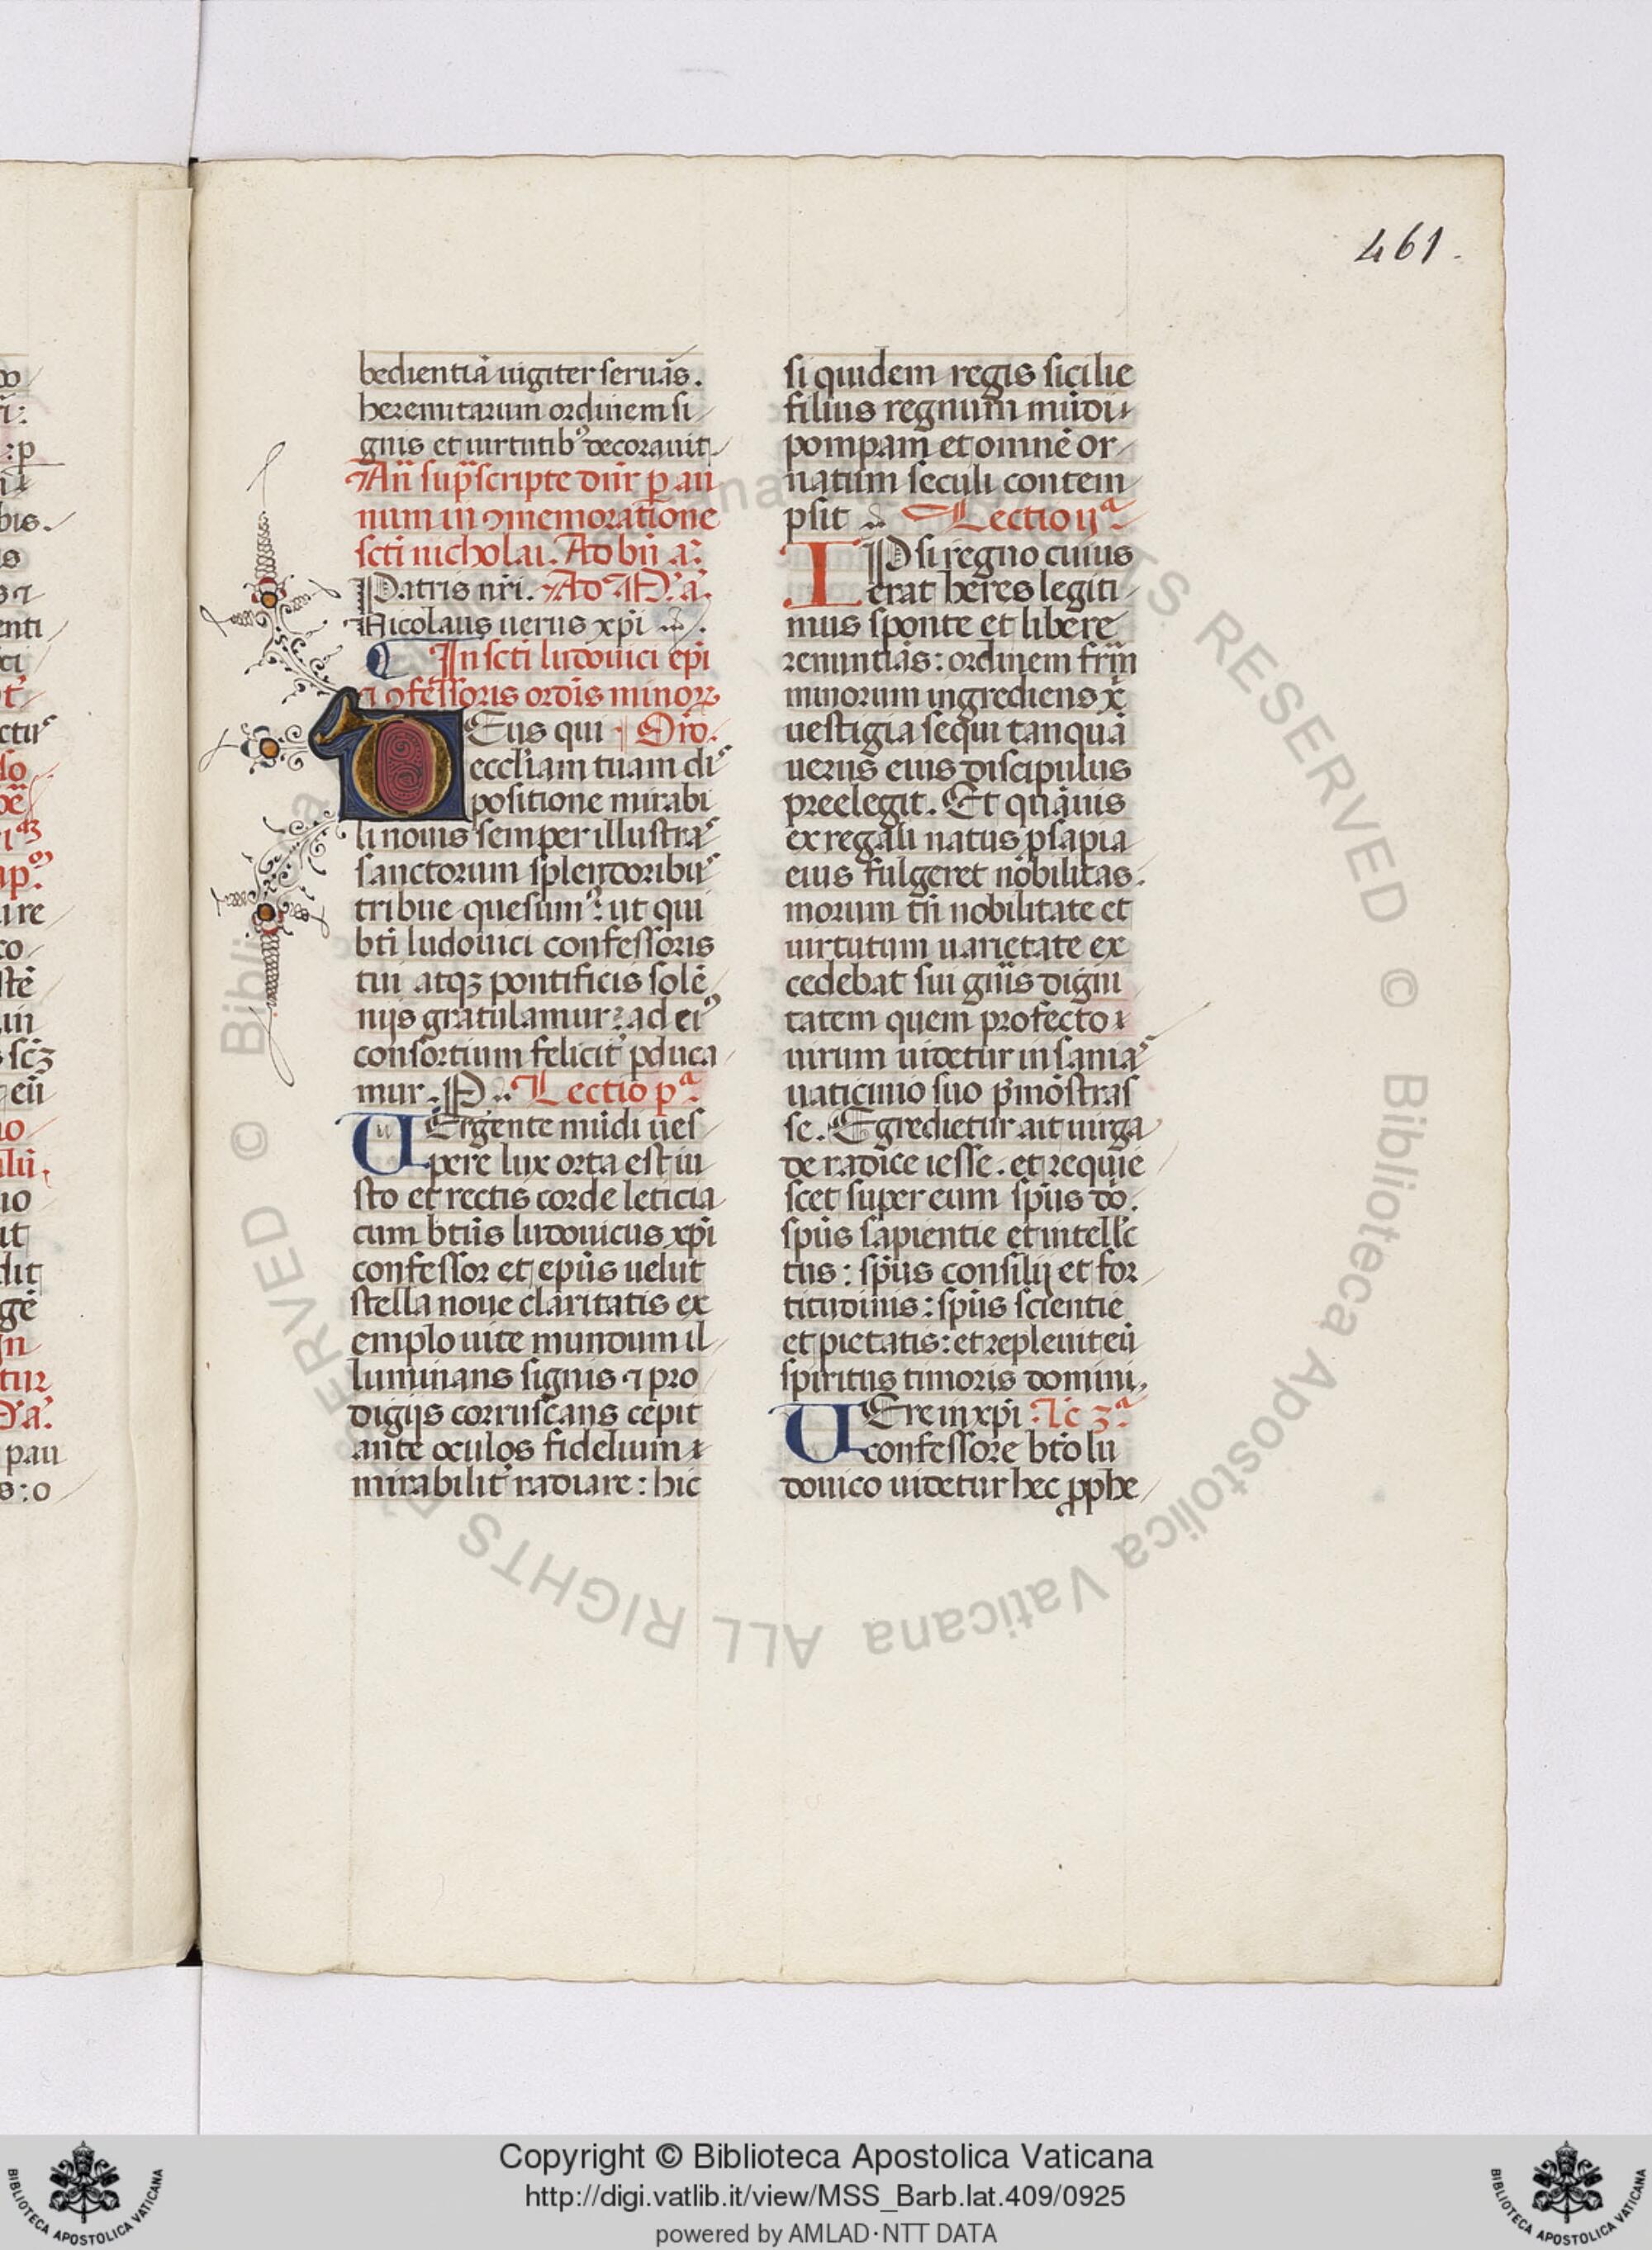 461.
bedientiā uigiter seruās.
heremitarum ordinem si
gnis et uirtutibꝰ decorauit
Añ sup̄scripte dn̄r ꝑ an
num in ꝯmemoratione
sc̄ti nicholai. Ad bn̄ a.
Patris nr̄i. Ad M. a.
Nicolaus uerus xp̄i
In sc̄ti ludouici ep̄i
ꝯfessoris ordīs minoꝝ
Deus qui Oro.
eccl̄iam tuam di
positione mirabi
li nouis semper illustras
sanctorum splendoribus
tribue quesumꝰ: ut qui
bt̄i ludouici confessoris
tui atqꝫ pontificis solē
nijs gratulamur: ad eiꝰ
consortium felicit̄ ꝑduca
mur. P. Lectio pª
Uergente mūdi ues
pere lux orta est iu
sto et rectis corde leticia
cum bt̄us ludouicus xp̄i
confessor et ep̄us uelut
stella noue claritatis ex
emplo uite mundum il
luminans signis ⁊ pro
digijs corruscans cepit
ante oculos fidelium
mirabilit̄ radiare: hic
si quidem regis sicilie
filius regnum mūdi
pompam et omnē or
natum seculi contem
psit Lectio ijª
Ipsi regno cuius
erat heres legiti
mus sponte et libere
renuntiās: ordinem fr̄m
minorum ingrediens x̄
uestigia sequi tanquā
uerus eius discipulus
preelegit. Et quāuis
ex regali natus ꝓsapia
eius fulgeret nobilitas.
morum tn̄ nobilitate et
uirtutum uarietate ex
cedebat sui gn̄is digni
tatem quem profecto
uirum uidetur in sanias
uaticinio suo p̄mōstras
se. Egredietur ait uirga
de radice iesse. et requie
scet super eum sp̄us dō.
sp̄us sapientie et intell̄c
tus: sp̄us consilij et for
titudinis: sp̄us scientie
et pietatis: et repleuit eū
spiritus timoris domini.
Uere in xp̄i Lc̄ 3ª
confessore bt̄o lu
douico uidetur hec ꝓphe
Copyright © Biblioteca Apostolica Vaticana
http://digi.vatlib.it/view/MSS_Barb.lat.409/0925
powered by AMLAD·NTT DATA